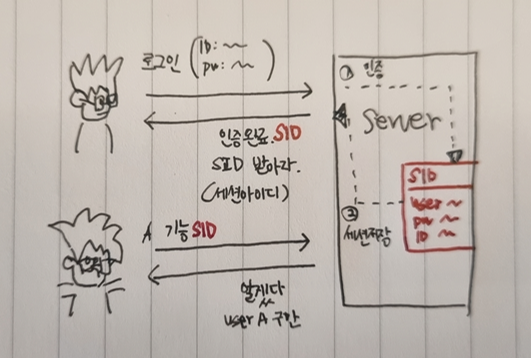 로그인 (ID: ~
pw: ~)
인증완료. SID
SID 받아라.
(세션아이디)
A 기능 SID
알겠다
user A 구만
① 인증
Server
SID
user ~
pw ~
ID ~
②
세션저장